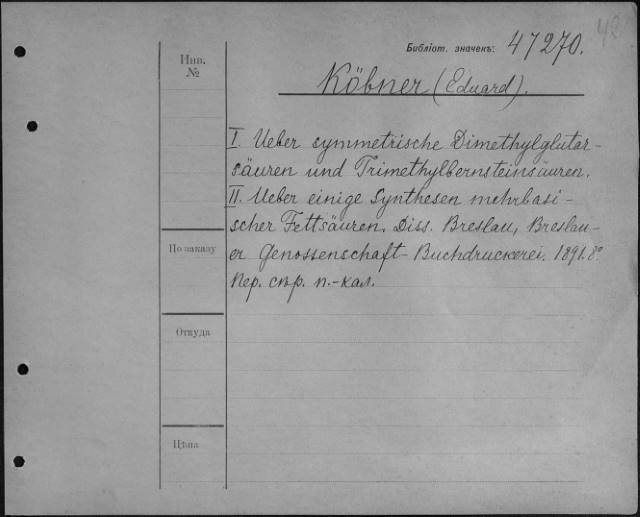 42
Библіот. значекъ: 47270.
Инв.
№
Köbner (Eduard).
I. Ueber symmetrische Dimethylglutar-
säuren und Trimethylbernsteinsäuren.
II. Ueber einige Synthesen mehrbasi-
scher Fettsäuren. Diss. Breslau, Breslau-
er Genossenschaft-Buchdruckerei. 1891. 8º
Пер. сѣр. п.-кал.
По заказу
Откуда
Цѣна